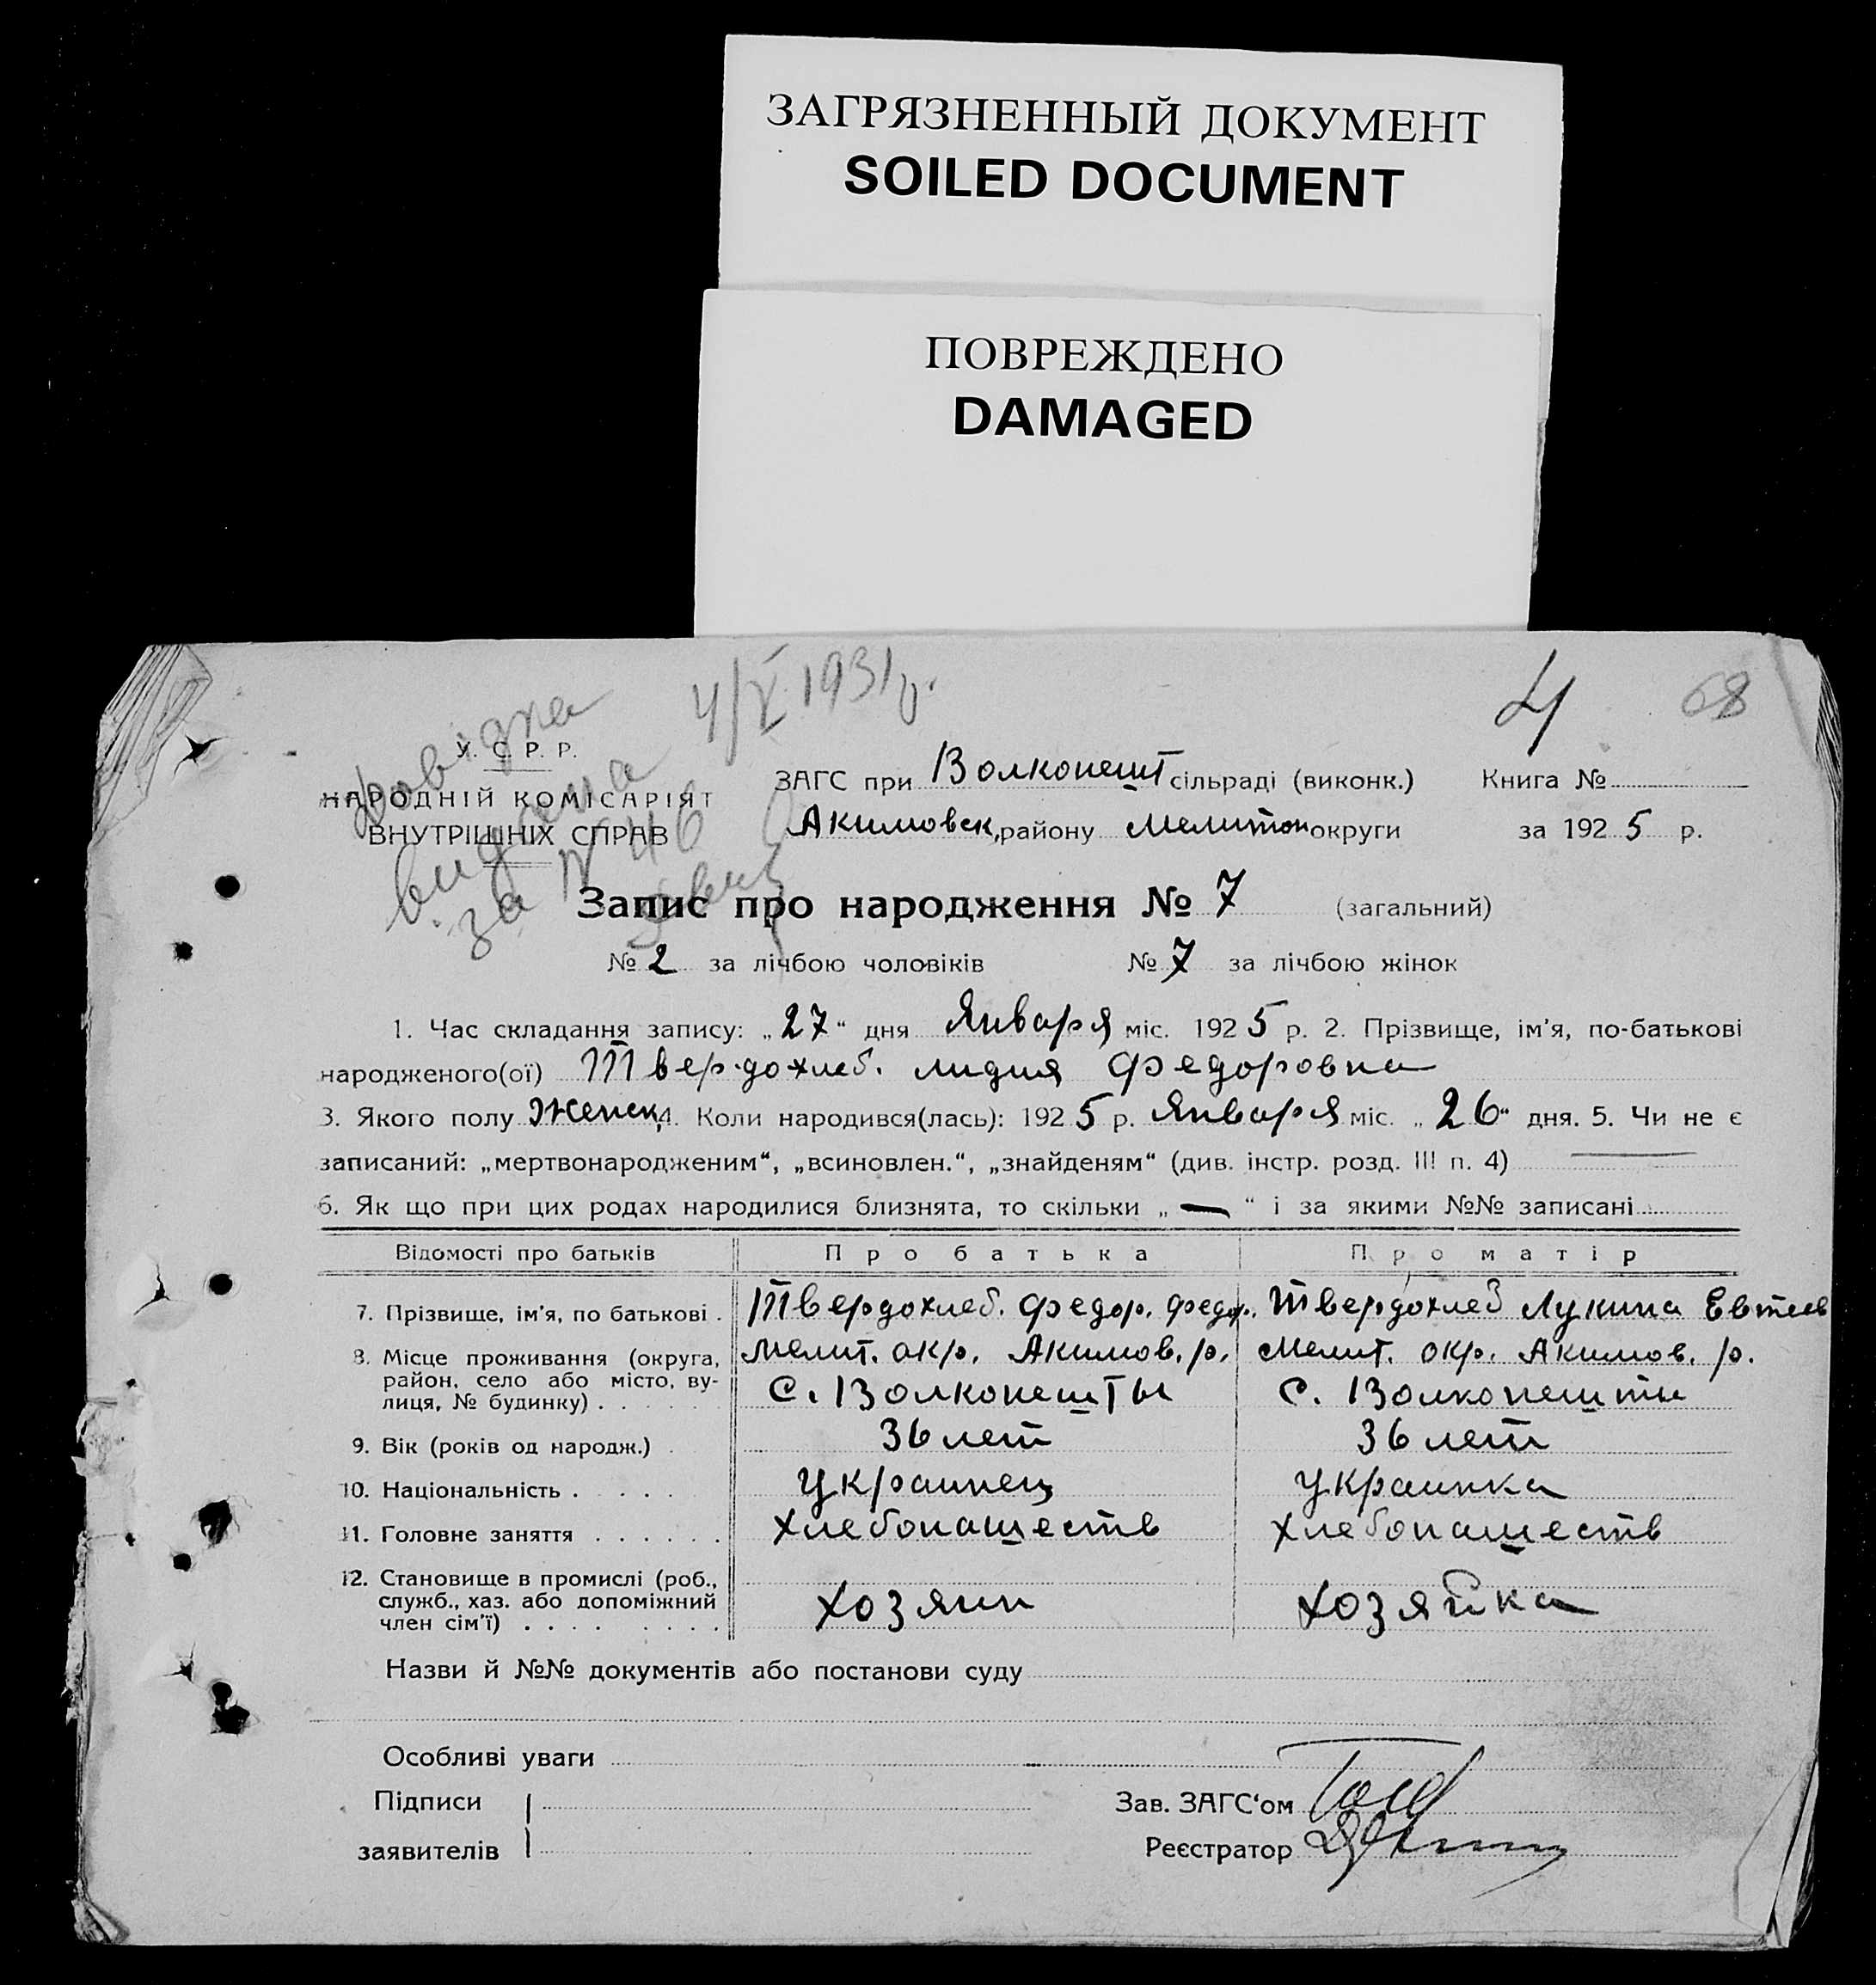 ЗАГРЯЗНЕННЫЙ ДОКУМЕНТ
SOILED DOCUMENT
ПОВРЕЖДЕНО
DAMAGED
4/V 1931р.
4
68
довідка
видана
за № 46
У. С. Р. Р.
НАРОДНІЙ КОМІСАРІЯТ
ВНУТРІШНІХ СПРАВ
ЗАГС при Волконешт сільраді (виконк.) Книга №
Акимовск, району Мелитоп округи за 1925 р.
Запис про народження № 7 (загальний)
№ 2 за лічбою чоловіків № 7 за лічбою жінок
1. Час складання запису: „27“ дня Января міс. 1925 р. 2. Прізвище, ім'я, по-батькові
народженого(ої) Твердохлеб. Лидия Федоровна
3. Якого полу Женск, 4. Коли народився(лась): 1925 р. Января міс. „26“ дня. 5. Чи не є
записаний: „мертвонародженим“, „всиновлен.“, „знайденям“ (див. інстр. розд. III п. 4) —
6. Як що при цих родах народилися близнята, то скільки „—“ і за якими №№ записані
Відомості про батьків Про батька Про матір
7. Прізвище, ім'я, по батькові . Твердохлеб. Федор. Федор. Твердохлеб Лукина Евтиев
8. Місце проживання (округа, район, село або місто, вулиця, № будинку) . Мелит. окр. Акимов. р. Мелит. окр. Акимов. р.
с. Волконешты с. Волконешты
9. Вік (років од народж.) . 36 лет 36 лет
10. Національність . Украинец Украинка
11. Головне заняття . Хлебопашеств Хлебопашеств
12. Становище в промислі (роб., служб., хаз. або допоміжний член сім'ї) . хозяин хозяйка
Назви й №№ документів або постанови суду
Особливі уваги
Підписи
заявителів
Зав. ЗАГС'ом
Реєстратор